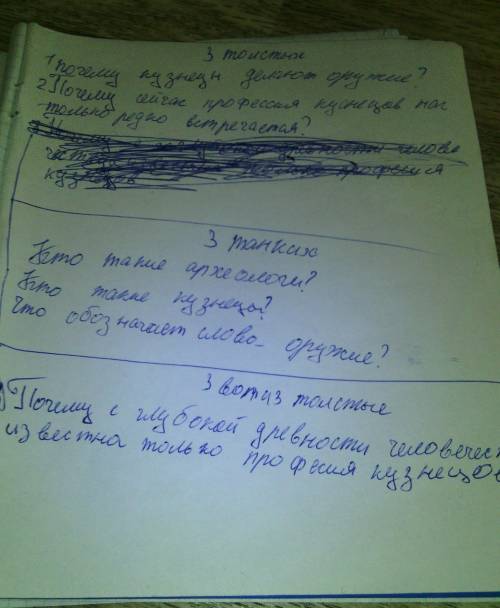 3 толстых
1 Почему кузнецы делают оружие?
2 Почему сейчас профессия кузнецов нас
только редко встречается?
кузнецов
3 танких
Кто такие археологи?
Кто такие кузнецы?
Что обозначает слово - оружие?
3 вот из толстые
Почему с глубокой древности человечест
известна только професия кузнецов